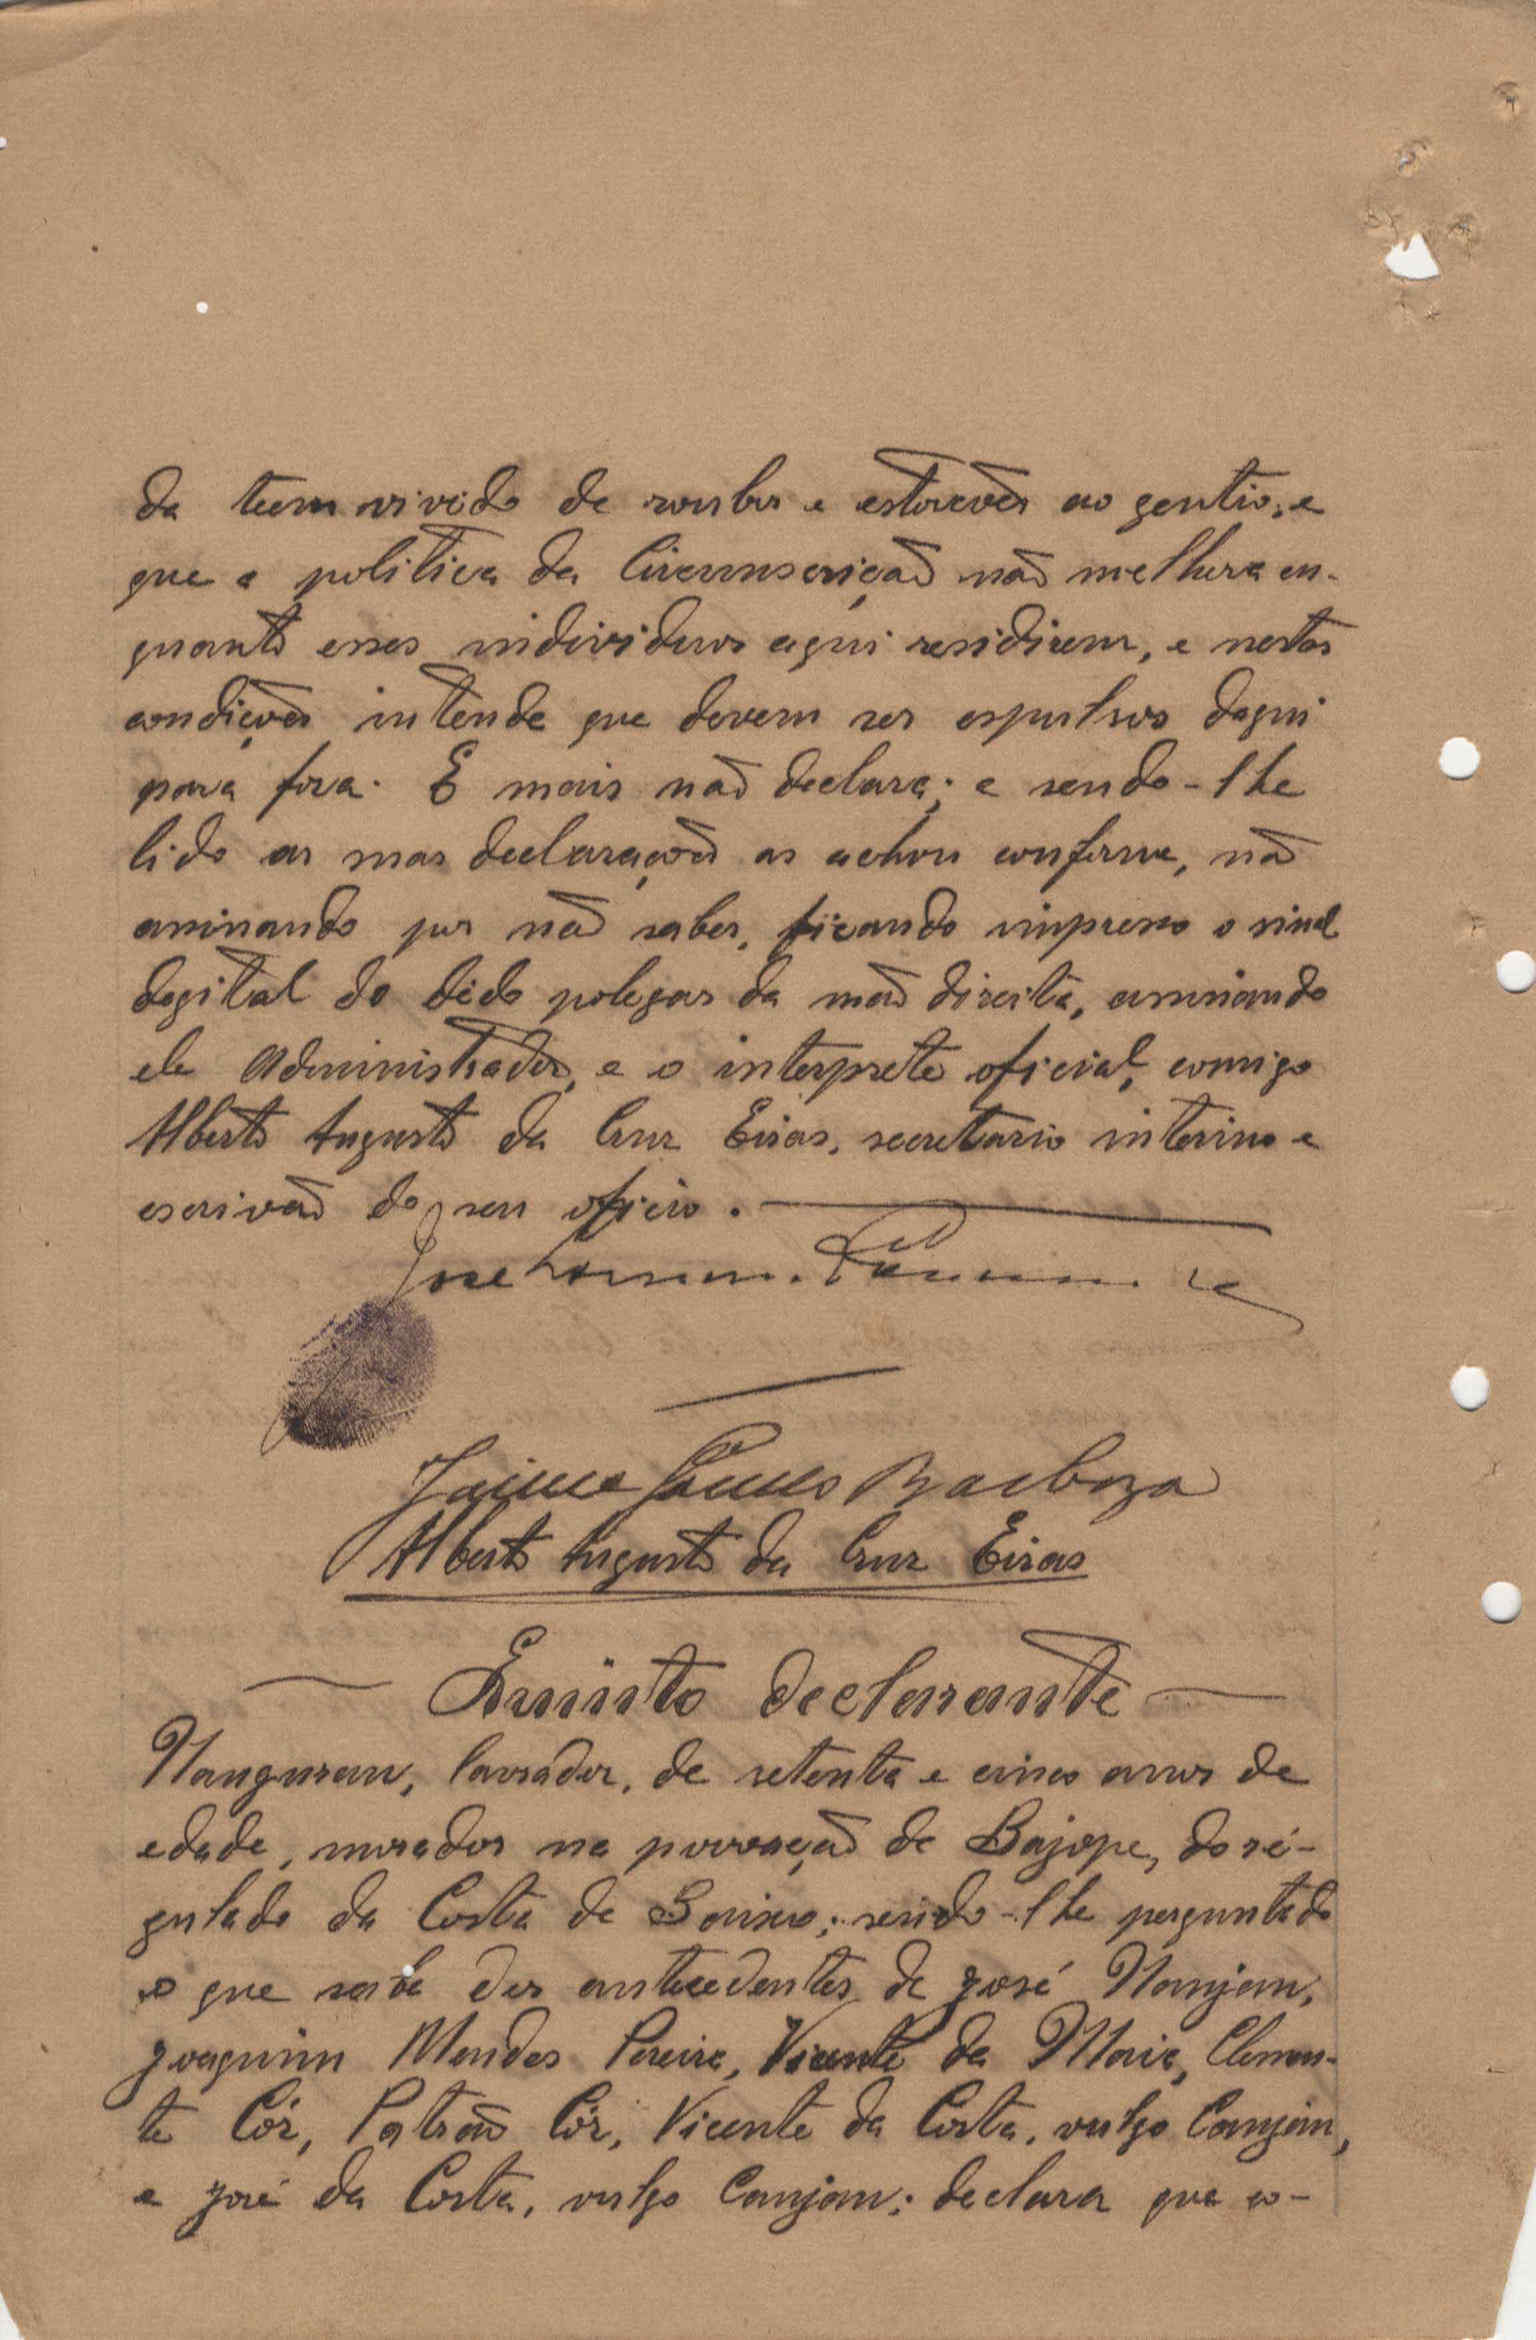 da teem vivido de roubos e estorcões ao gentio, e
que a politica da Circunscrição não melhora en-
quanto esses individuos aqui residirem, e nestas
condições intende que devem ser espulsos daqui
para fora. E mais não declara; e sendo-lhe
lido as suas declarações as achou conforme, não
assinando por não saber, ficando impresso o sinal
degital do dedo polegar da mão direita, assinando
ele Administrador, e o interprete oficial, comigo
Alberto Augusto da Cruz Eiras, secretario interino e
escrivão do seu oficio.
José
Jaime Gomes Barboza
Alberto Augusto da Cruz Eiras
Quinto declarante
Nanguran, lavrador, de setenta e cinco anos de
edade, morador na povoação de Bajope, do ré-
gulado da Costa de Baixo; sendo-lhe perguntado
o que sabe dos antecedentes de José Nanjan,
Joaquim Mendes Pereira, Vicente da Maia, Clemen-
te Có, Patrão Có, Vicente da Costa, vulgo Canjan,
e José da Costa, vulgo Canjan; declara que co-